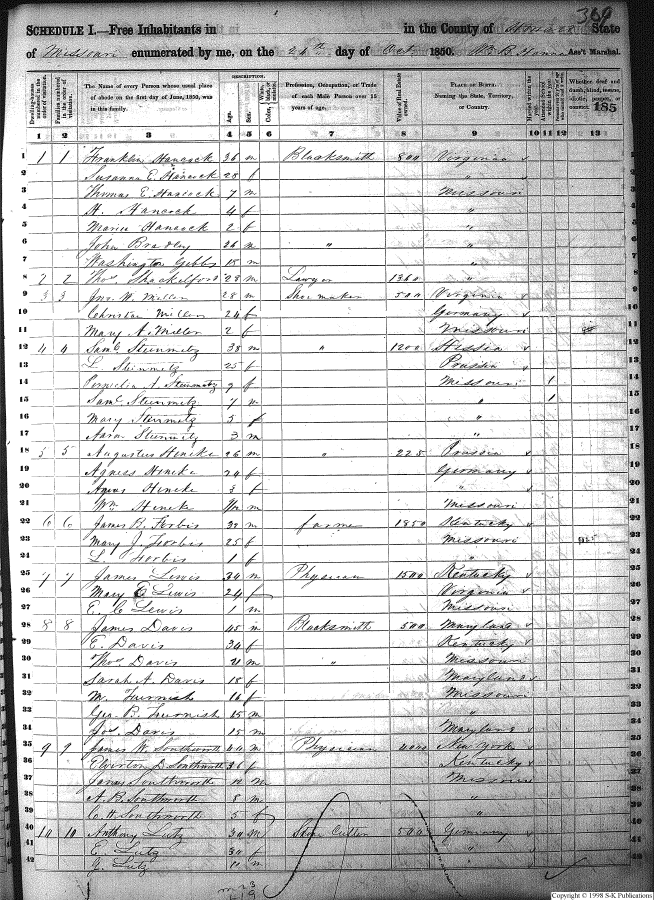 309
SCHEDULE I.—Free Inhabitants in in the County of Howard State
of Missouri enumerated by me, on the 24th day of Oct 1850. Wm B. Hanna Ass't Marshal.
Dwelling-houses numbered in the order of visitation.
Families numbered in the order of visitation.
The Name of every Person whose usual place of abode on the first day of June, 1850, was in this family.
DESCRIPTION.
Age.
Sex.
Color,
Profession, Occupation, or Trade of each Male Person over 15 years of age.
Value of Real Estate owned.
PLACE OF BIRTH. Naming the State, Territory, or Country.
Married within the year.
Attended School within the year.
Whether deaf and dumb, blind, insane, idiotic, pauper, or convict.
185
1 2 3 4 5 6 7 8 9 10 11 12 13
1 1 1 Franklin Hancock 36 m Blacksmith 800 Virginia
2 Susanna E. Hancock 28 f "
3 Thomas E. Hancock 7 m Missouri
4 H. Hancock 4 f "
5 Maria Hancock 2 f "
6 John Bradley 26 m " "
7 Washington Gibbs 18 m "
8 2 2 Thos Shackelford 28 m Lawyer 1360 "
9 3 3 Jno. W. Miller 28 m Shoe maker 500 Virginia
10 Christen Miller 24 f Germany
11 Mary A. Miller 2 f Missouri
12 4 4 Saml Steinmetz 38 m " 1200 Hessia
13 L. Steinmetz 25 f Prussia
14 Pernelia A. Steinmetz 9 f Missouri 1
15 Saml Steinmetz 7 m " 1
16 Mary Steinmetz 5 f "
17 Aaron Steinmetz 3 m "
18 5 5 Augustus Heneke 26 m " 225 Prussia
19 Agness Heneke 24 f Germany
20 Agnes Heneke 3 f "
21 Wm Heneke m Missouri
22 6 6 James B. Forbis 32 m farmer 1850 Kentucky
23 Mary J. Forbis 25 f Missouri
24 L. Forbis 1 f "
25 7 7 James Lewis 34 m Physician 1500 Kentucky
26 Mary E Lewis 24 f Virginia
27 E. C Lewis 1 m Missouri
28 8 8 James Davis 45 m Blacksmith 500 Maryland
29 E. Davis 34 f Kentucky
30 Thos Davis 21 m " Missouri
31 Sarah A. Davis 18 f Maryland
32 M. Furnish 16 f Missouri
33 Geo. B. Furnish 15 m "
34 Jos Davis 15 m Maryland
35 9 9 James W. Southworth 44 m Physician 4000 New York
36 Elverton D. Southworth 36 f Kentucky
37 James Southworth 10 m Missouri
38 A. B. Southworth 8 m "
39 C. H. Southworth 5 f "
40 10 10 Anthony Lutz 30 m Stone Cutter 500 Germany
41 E. Lutz 30 f "
42 J. Lutz 11 m "
Copyright © 1998 S-K Publications